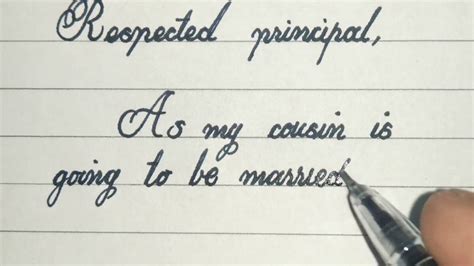 Respected principal,
As my cousin is
going to be married